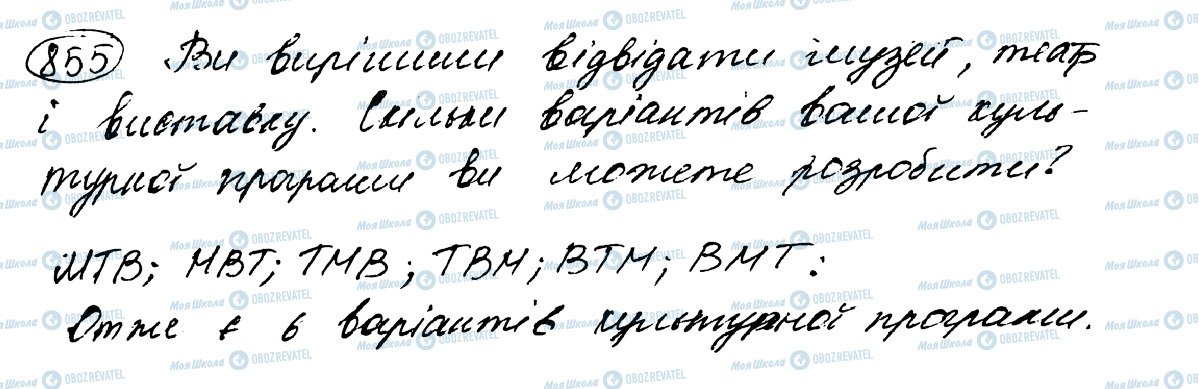 855 Ви вирішили відвідати музей, театр
і виставку. Скільки варіантів вашої куль-
турної програми ви можете розробити?
МТВ; МВТ; ТМВ; ТВМ; ВТМ; ВМТ:
Отже є 6 варіантів культурної програми.